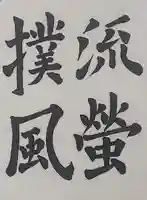 流螢
撲風